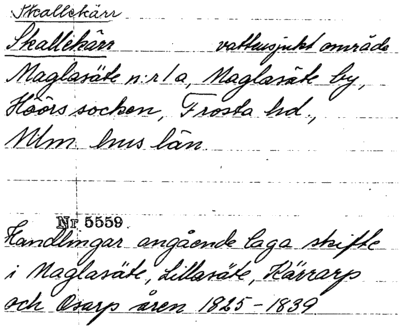 Skallekärr
Skallekärr vattensjukt område
Maglasäte n:r 1 a, Maglasäte by,
Höörs socken, Frosta hd.,
Mlm hus län
Nr 5559.
Handlingar angående laga skifte
i Maglasäte, Lillasäte, Kärrarp
och Osarp åren 1825-1839